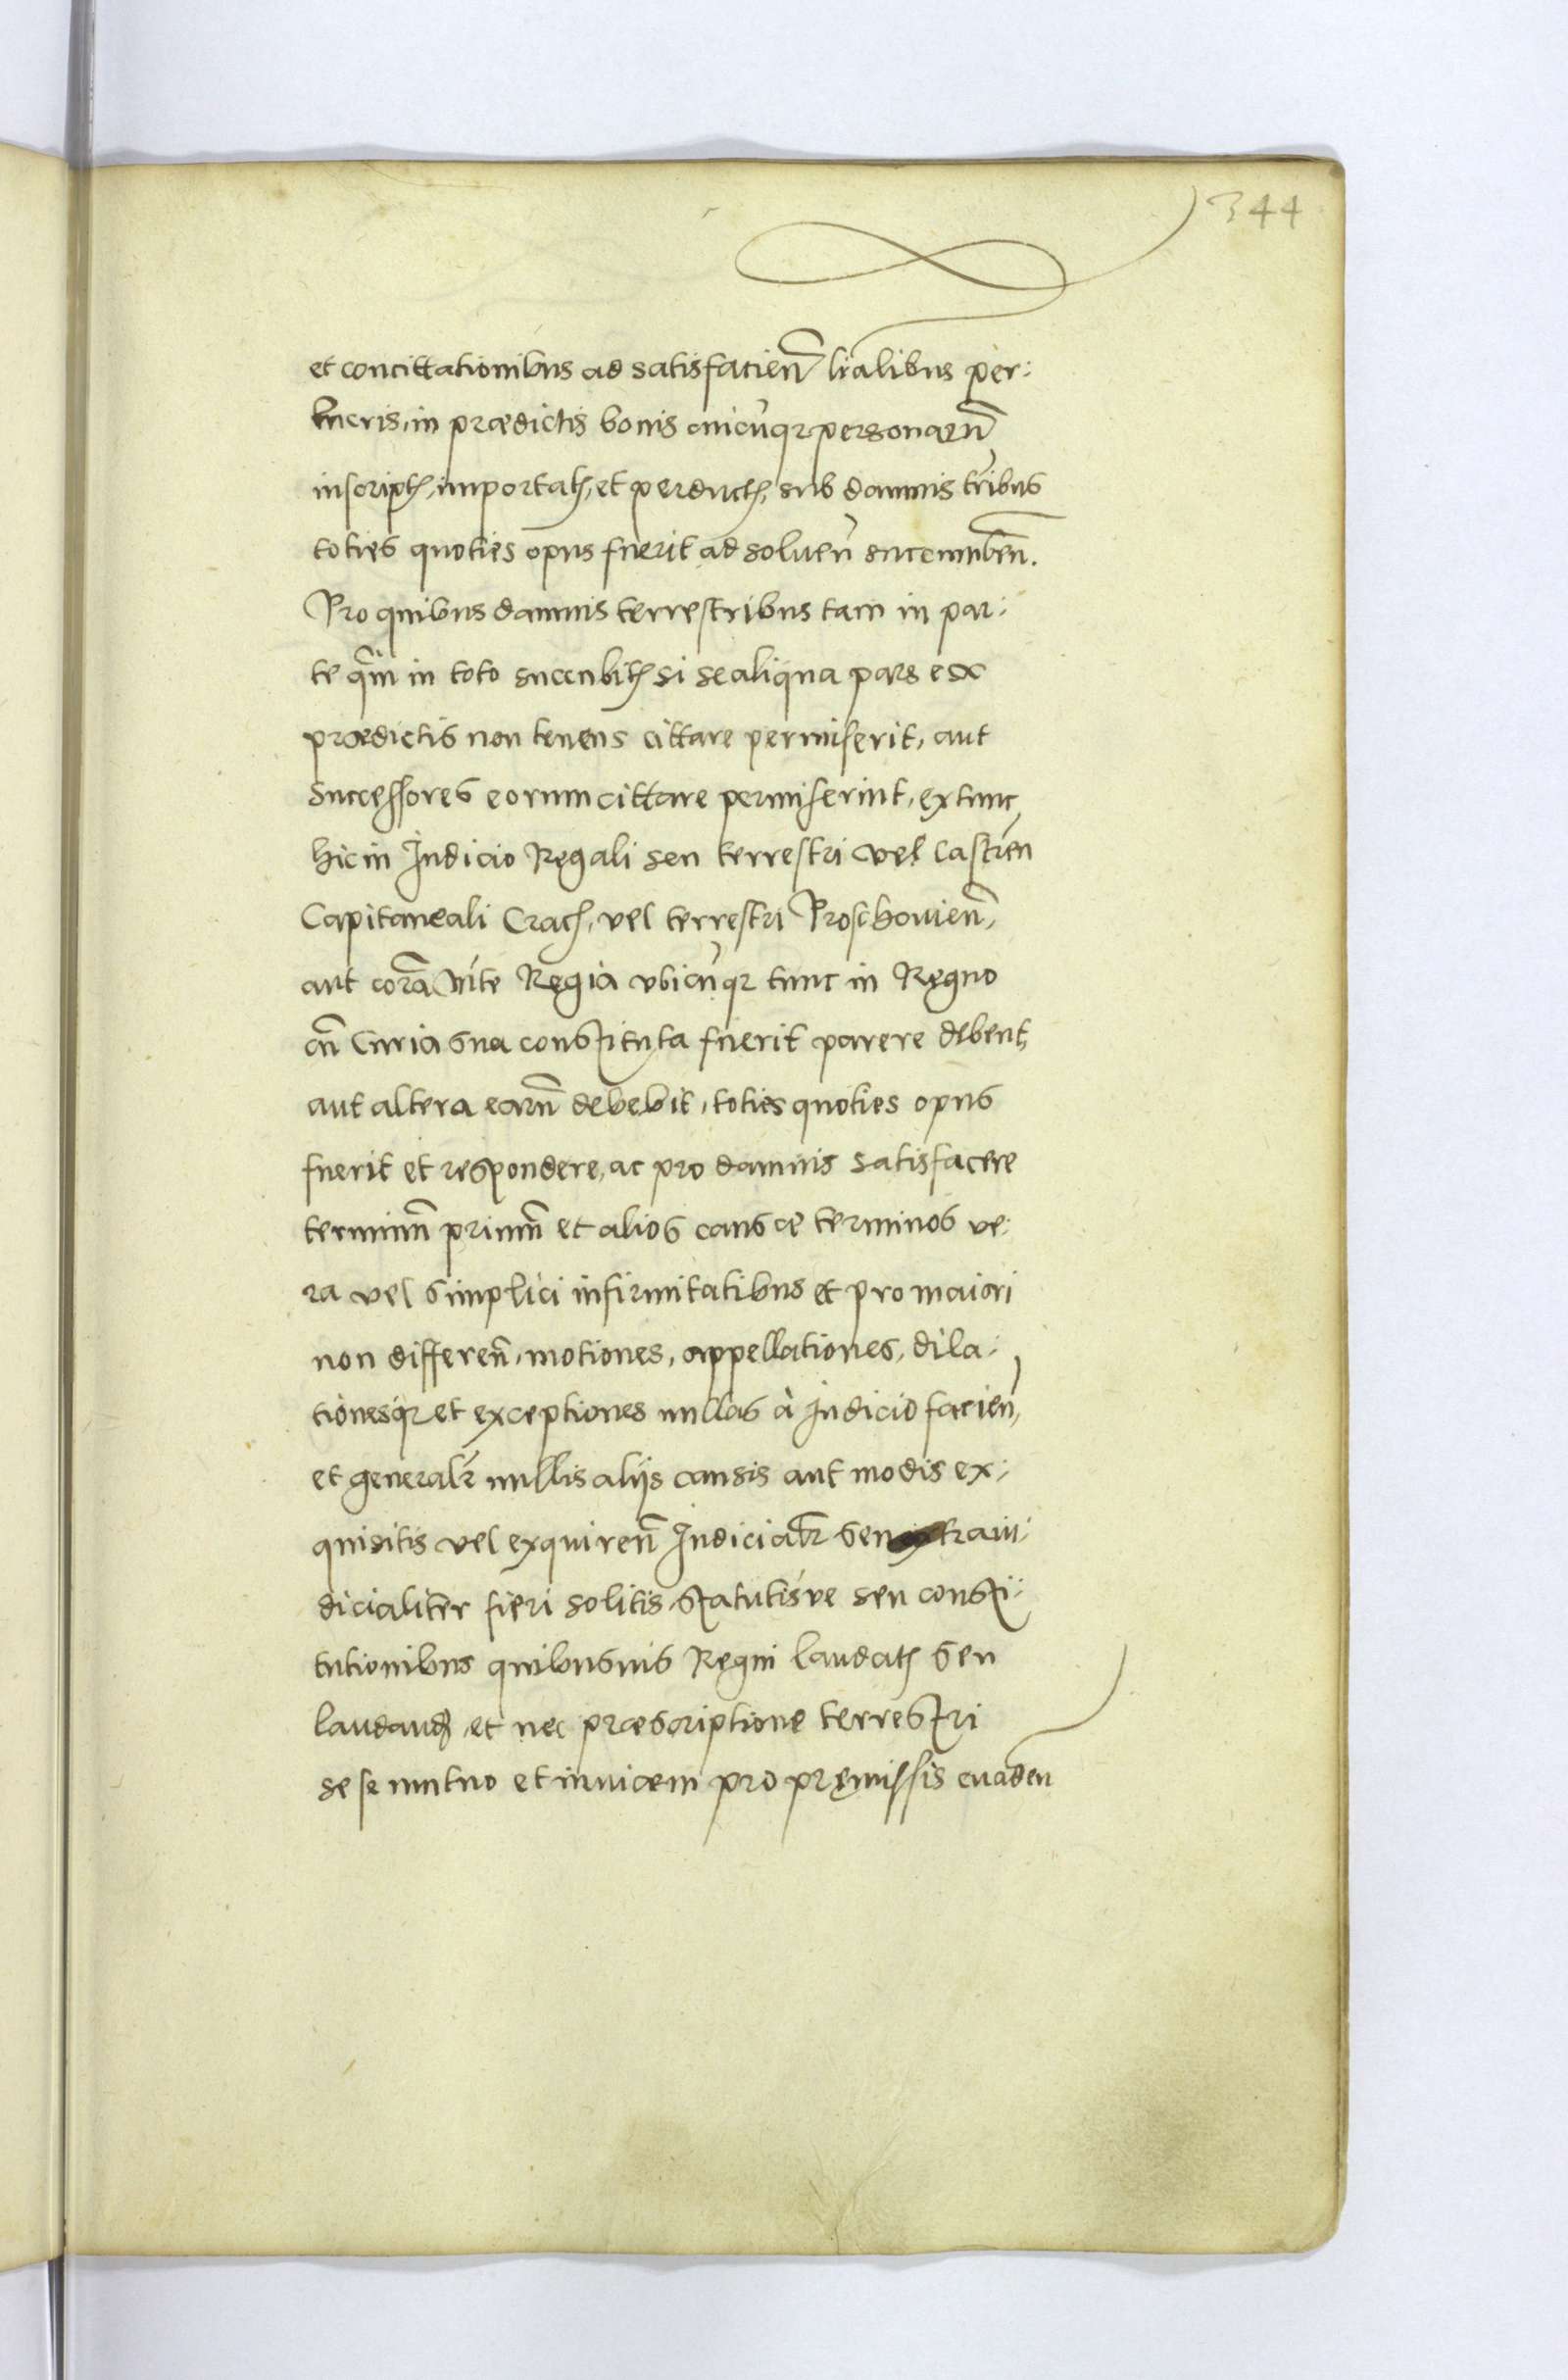 344
et concittationibus ad satisfacien̄ l̄ialibus per:
lucris, in prædictis bonis cuicūq₃ personarū
inscriptꝭ, importatꝭ, et perductꝭ, sub damnis tribus
toties quoties opus fuerit ad soluen̄ succumben̄.
Pro quibus damnis terrestribus tam in par:
te q̄m in toto succubitꝭ si se aliqua pars ex
prædictis non tenens cittare permiserit, aut
successores eorum cittare permiserint, ex tunc
hic in Iudicio Regali seu terrestri vel Castren̄
Capitaneali Cracꝭ, vel terrestri Proschouien̄,
aut corā Mte Regia vbicūq₃ tunc in Regno
cū Curia sua constituta fuerit parere debent,
aut altera earū debebit, toties quoties opus
fuerit et respondere, ac pro damnis satisfacere
terminū primū et alios causæ terminos ve:
ra vel simplici infirmitatibus et pro maiori
non differen̄, motiones, appellationes, dila:
tionesq₃ et exceptiones nullas à Iudicio facien̄,
et generalr̄ nullis alijs causis aut modis ex:
quisitis vel exquiren̄ Iudicialr̄ seu extraiu:
dicialiter fieri solitis, statutisve seu consti:
tutionibus quibusuis Regni laudatꝭ seu
laudandꝭ, et nec præscriptione terrestri
sese mutuo et inuicem pro pręmissis euaden̄